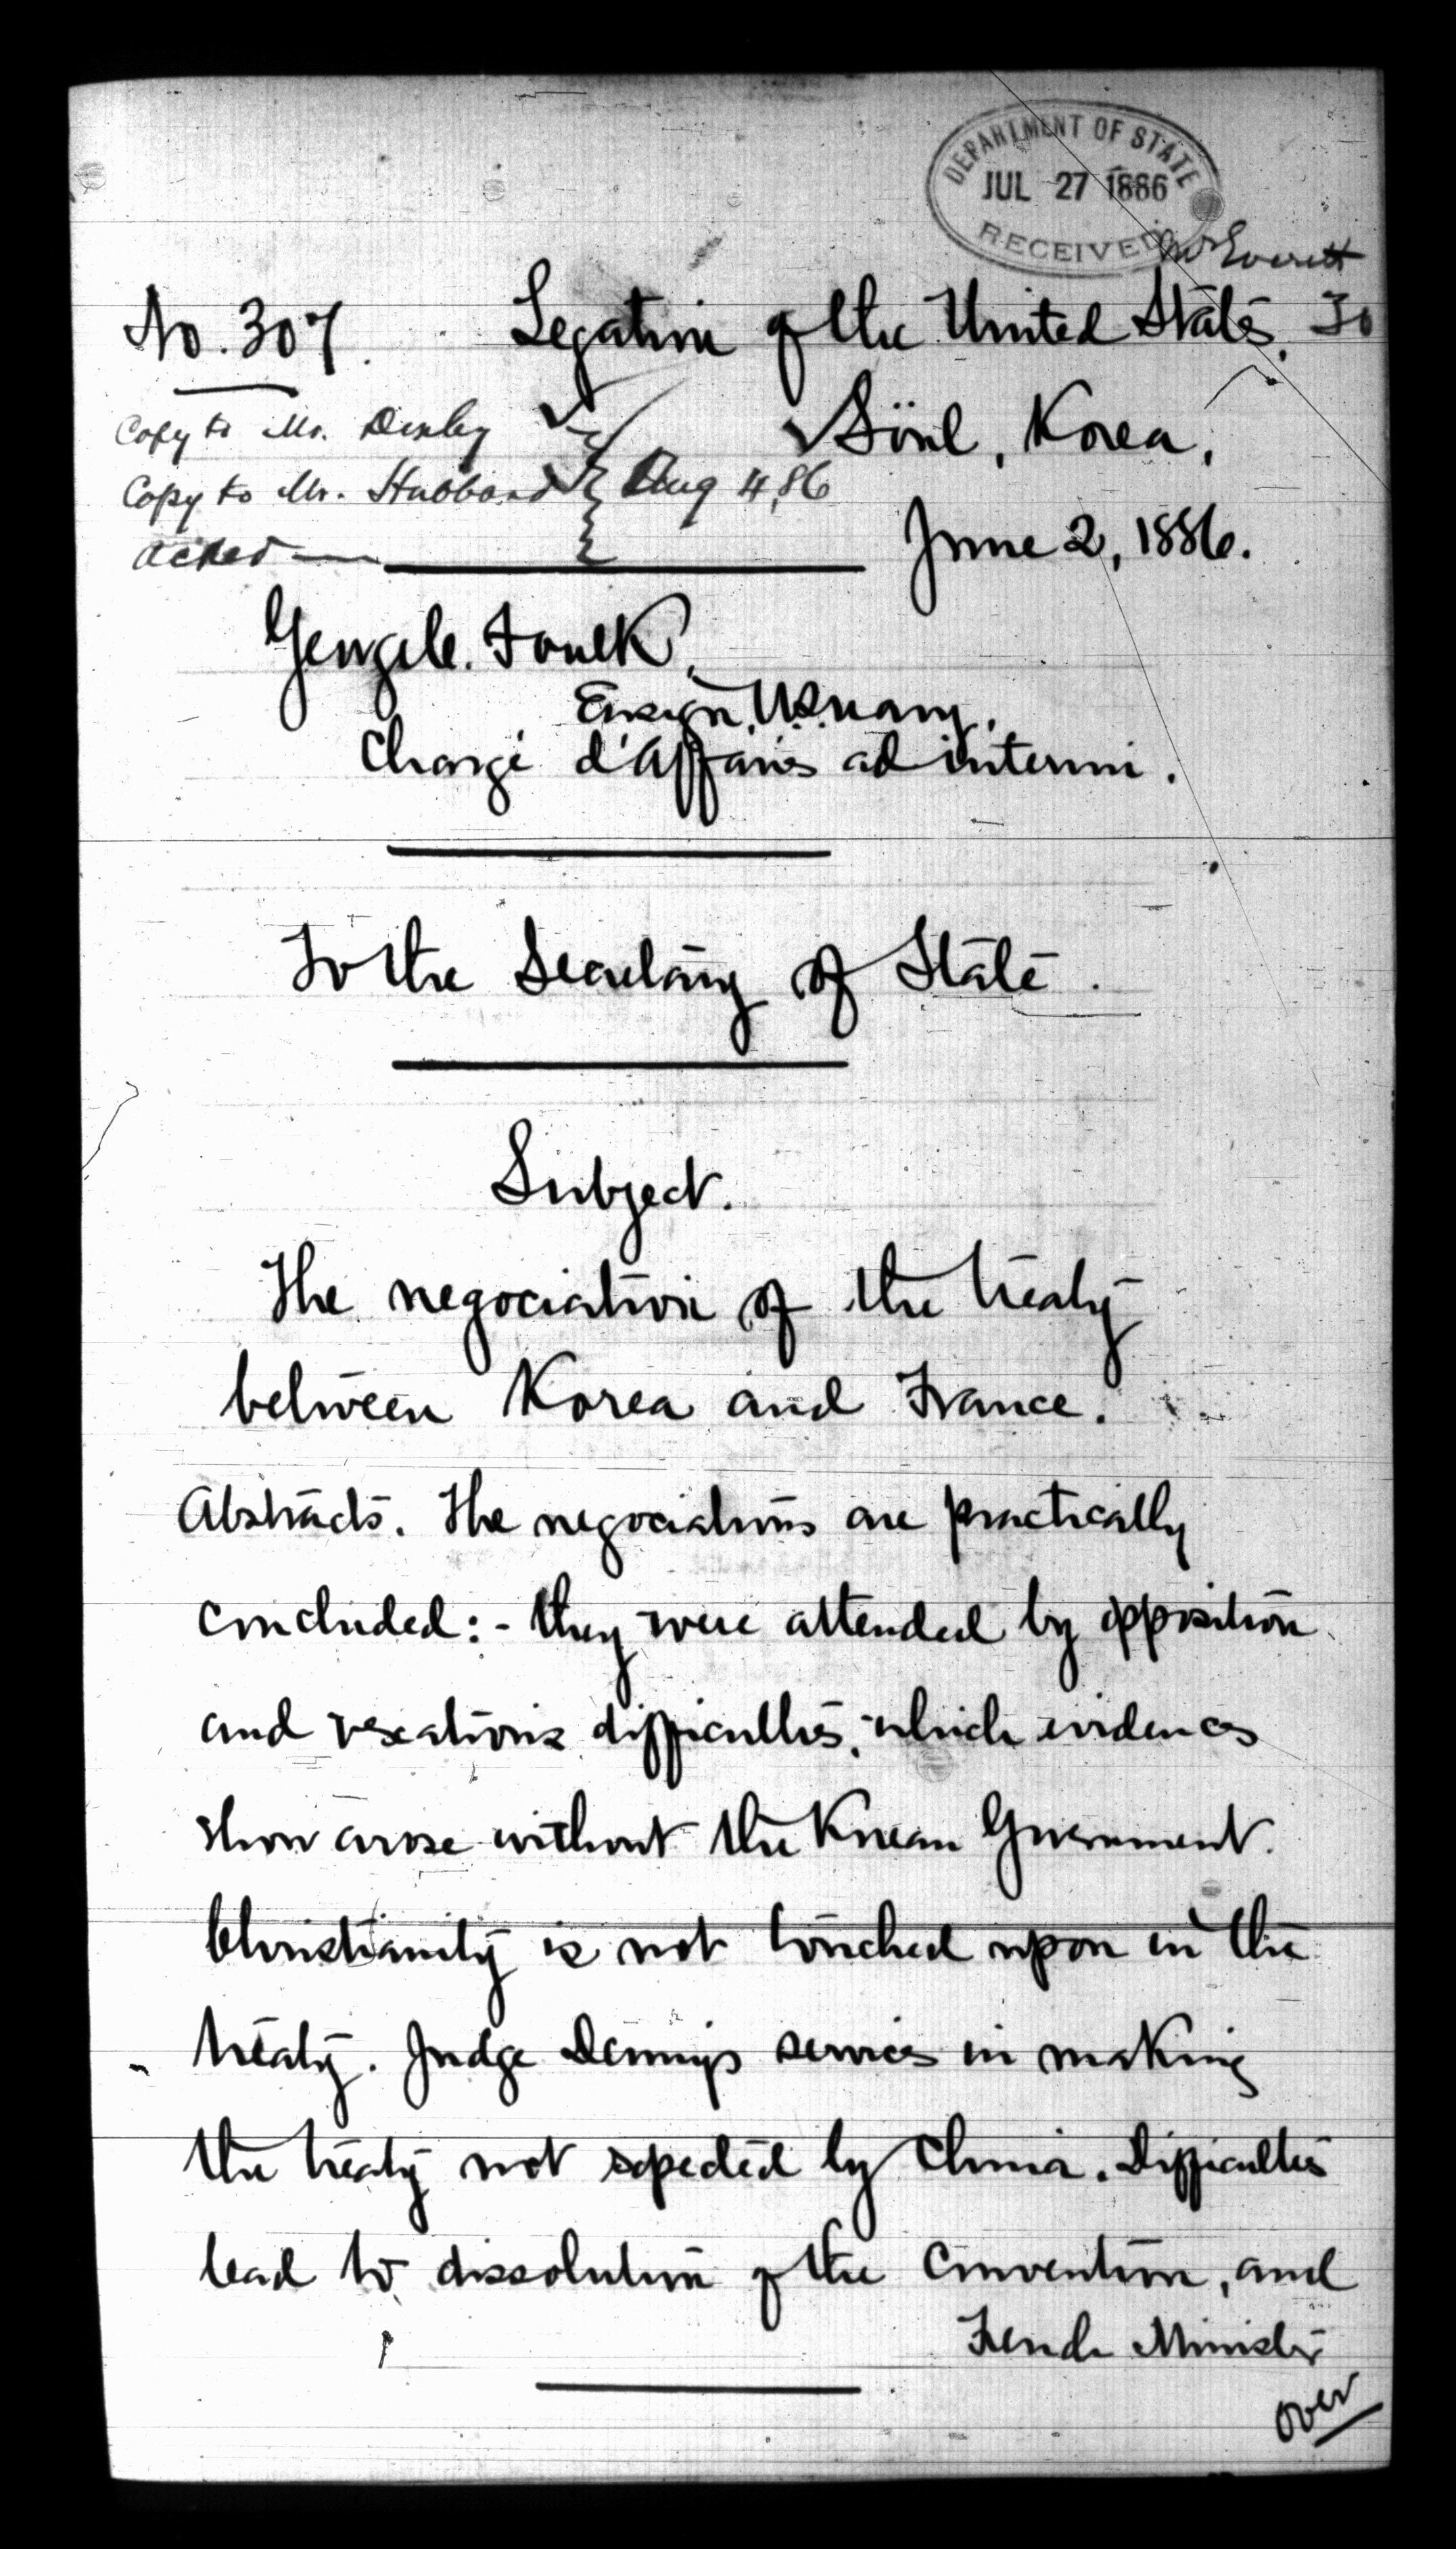 DEPARTMENT OF STATE
JUL 27 1886
RECEIVED
Mr Everett
No. 307. Legation of the United States,
Copy to Mr. Denby Söul, Korea,
Copy to Mr. Hubbard Aug 4, 86
ackd June 2, 1886.
George C. Foulk,
Ensign, U.S. Navy,
Chargé d'Affaires ad interim.
To the Secretary of State.
Subject.
The negociation of the treaty
between Korea and France.
Abstracts. The negociations are practically
concluded:- they were attended by opposition
and vexatious difficulties, which evidences
show arose without the Korean Government.
Christianity is not touched upon in the
treaty. Judge Denny's services in making
the treaty not expected by China. Difficulties
lead to dissolution of the Convention, and
French Minister
over